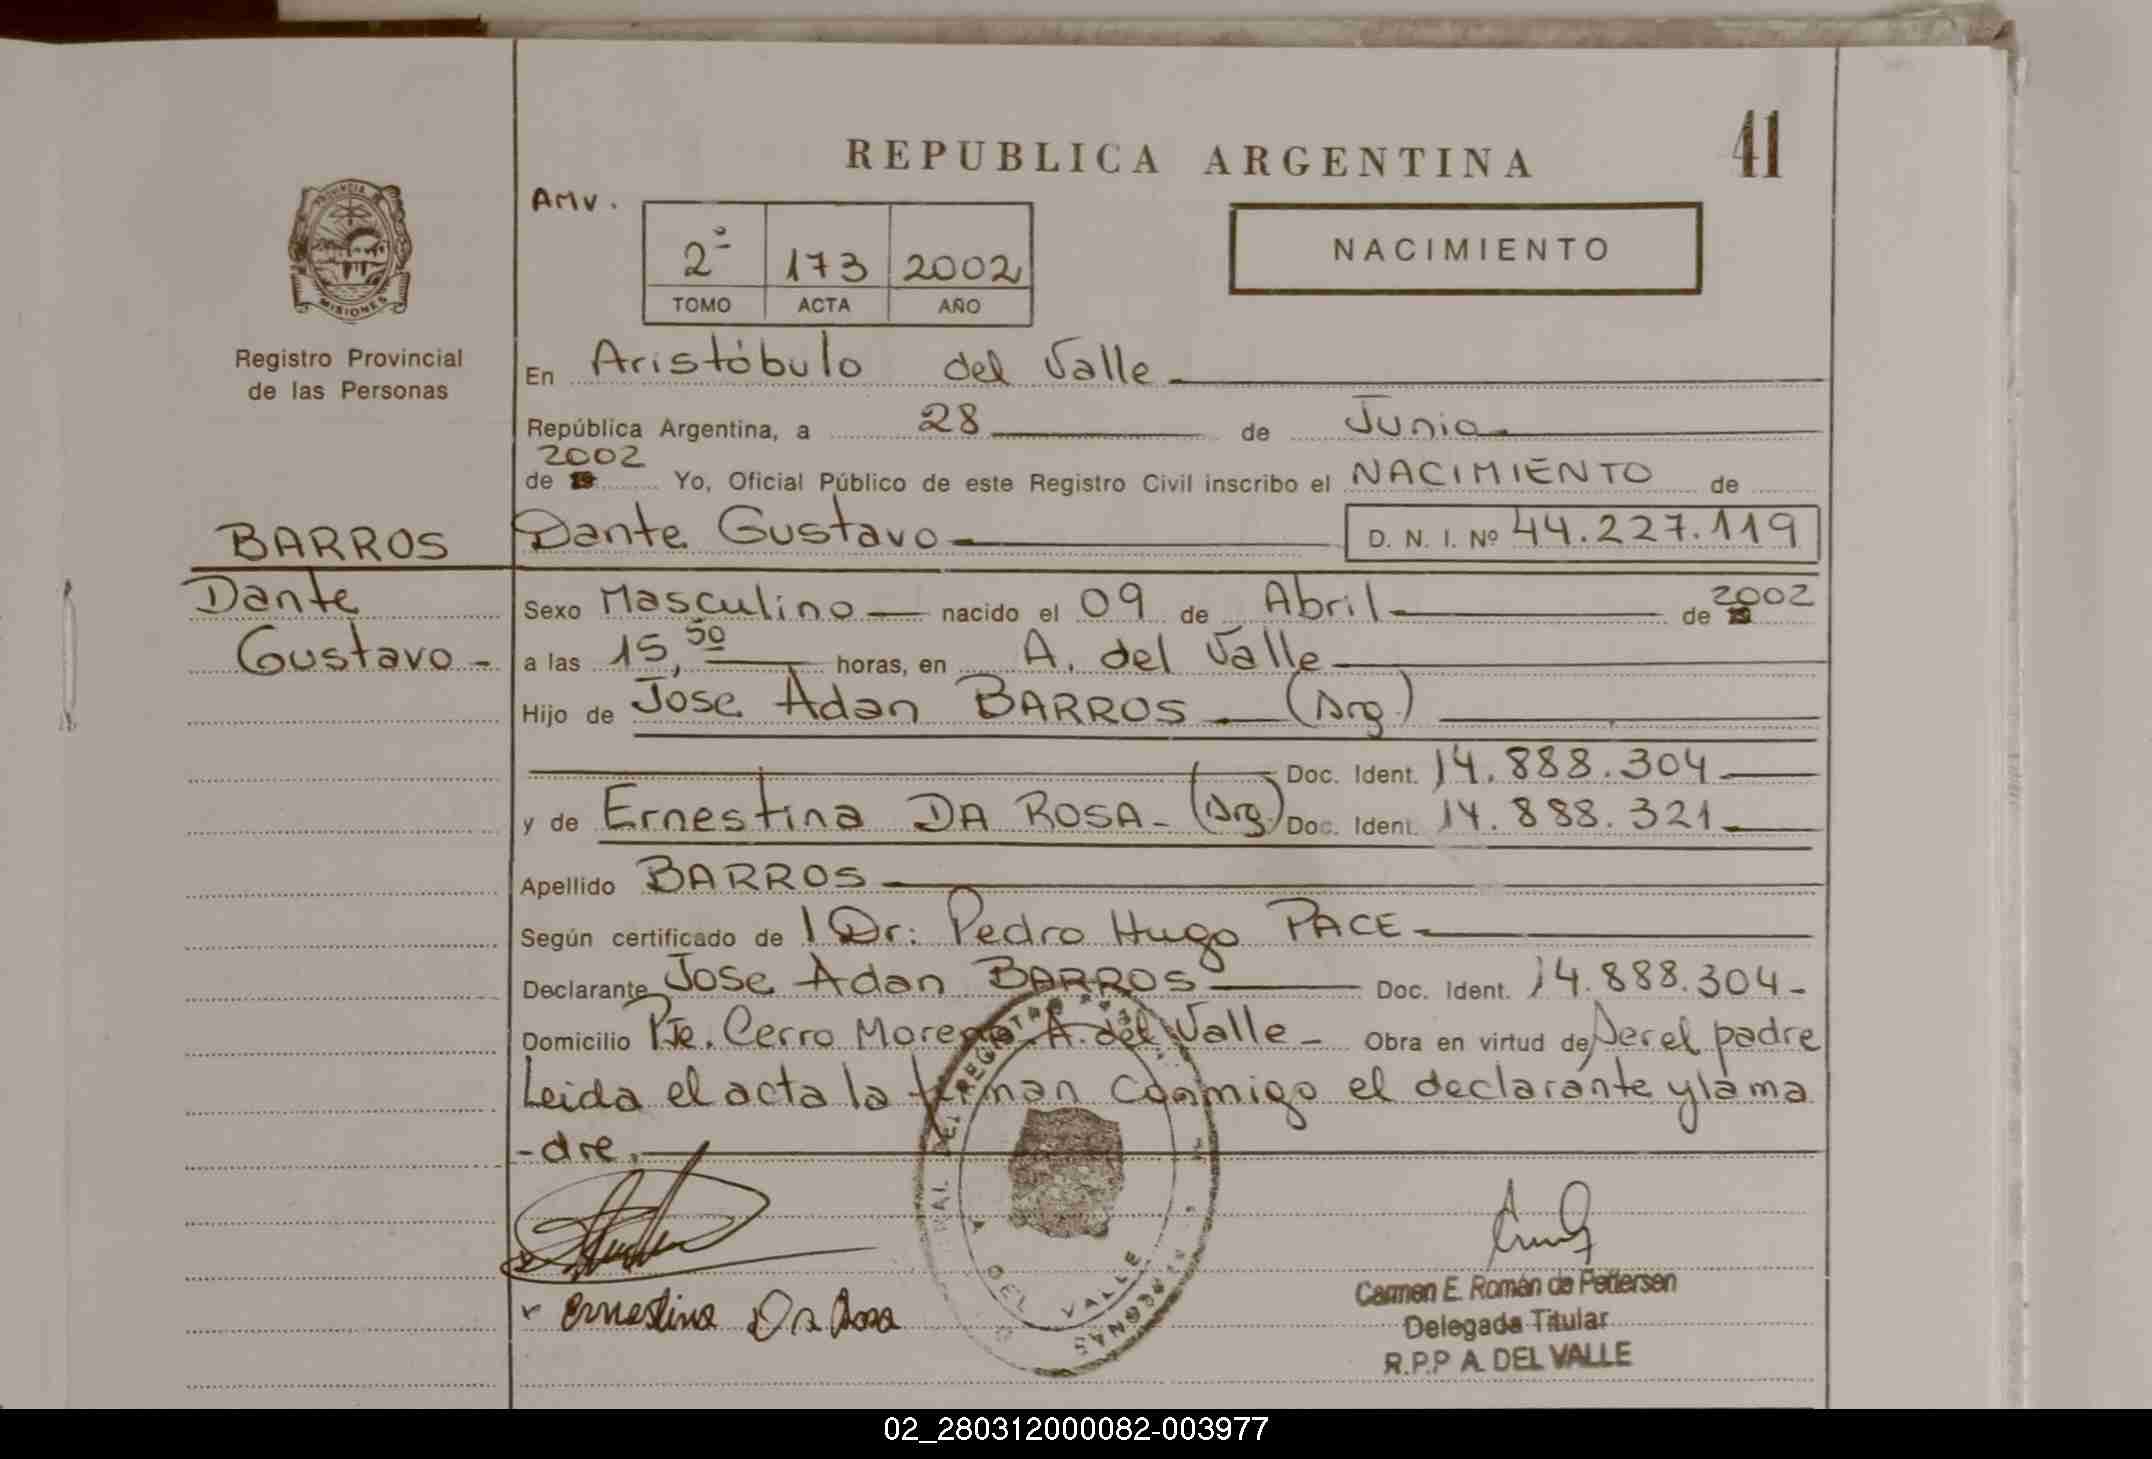 REPUBLICA ARGENTINA
41
AMV.
2º 173 2002
TOMO ACTA AÑO
NACIMIENTO
PROVINCIA
MISIONES
Registro Provincial
de las Personas
En Aristóbulo del Valle
República Argentina, a 28 de Junio
2002
de 19 Yo, Oficial Público de este Registro Civil inscribo el NACIMIENTO de
BARROS
Dante Gustavo D. N. I. Nº 44.227.119
Dante
Gustavo -
Sexo Masculino nacido el 09 de Abril de 2002
a las 15,50 horas, en A. del Valle
Hijo de Jose Adan BARROS (Arg.)
Doc. Ident. 14.888.304
y de Ernestina DA ROSA - (Arg.) Doc. Ident. 14.888.321
Apellido BARROS
Según certificado de 1 Dr: Pedro Hugo PACE
Declarante Jose Adan BARROS Doc. Ident. 14.888.304-
Domicilio Pje. Cerro Moreno A. del Valle - Obra en virtud de Ser el padre
Leida el acta la firman conmigo el declarante y la ma
-dre.
DEL REGISTRO
A DEL VALLE
Ernestina Da Rosa
Carmen E. Román de Pettersen
Delegada Titular
R.P.P A. DEL VALLE
02_280312000082-003977